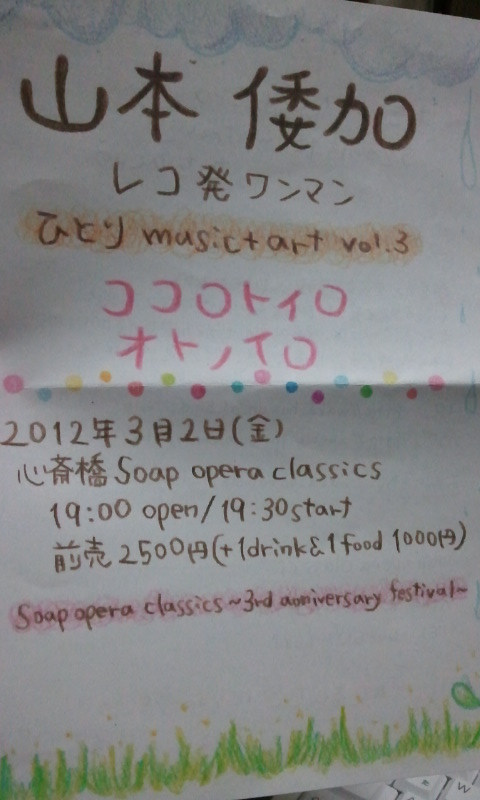 山本 倭加
レコ発ワンマン
ひとり music+art vol.3
ココロトイロ
オトノイロ
2012年3月2日(金)
心斎橋 Soap opera classics
19:00 open/19:30start
前売 2500円(+1drink&1food 1000円)
Soap opera classics~3rd anniversary festival~